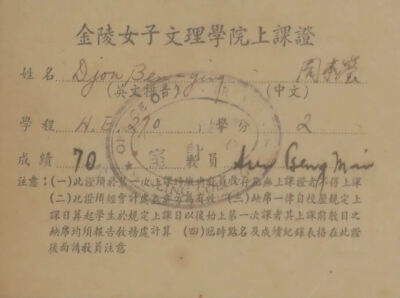 金陵女子文理學院上課證
姓名 Djon Ben-ging 周
(英文拼音) (中文)
學程 H.E. 270 學分 2
成績 70 教員
注意:(一)此證須於第一次上課時繳由教員收存無上課證者不得上課
(二)此證須經會計處蓋章方為有效 (三)缺席一律自校曆規定上
課日算起學生於規定上課日以後始上第一次課者其上課前數日之
缺席均須報告教務處計算 (四)臨時點名及成績紀錄表格在此證
後面請教員注意